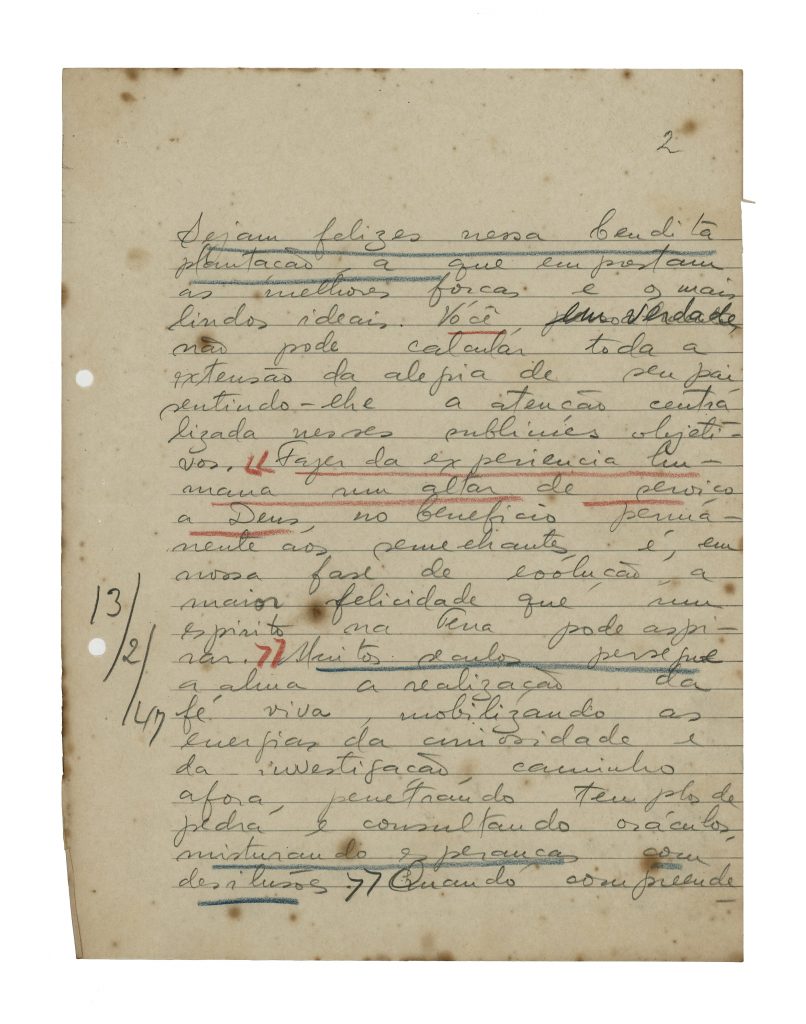 2
Sejam felizes nessa bendita
plantação, a que emprestam
as melhores forças e os mais
lindos ideais. Você em verdade,
não pode calcular toda a
extensão da alegria de seu pai
sentindo-lhe a atenção centra
lizada nesses sublimes objeti-
vos. « Fazer da experiencia hu-
mana um altar de serviço
a Deus, no beneficio perma-
nente aos semelhantes, é, em
nossa fase de evolução, a
maior felicidade que um
espirito na Terra pode aspi-
rar. » Muitos seculos persegue
a alma a realização da
fé viva, mobilizando as
energias da curiosidade e
da investigação, caminho
afora, penetrando templos de
pedra e consultando oráculos,
misturando esperanças com
desilusões. » Quando compreende
13/2/47